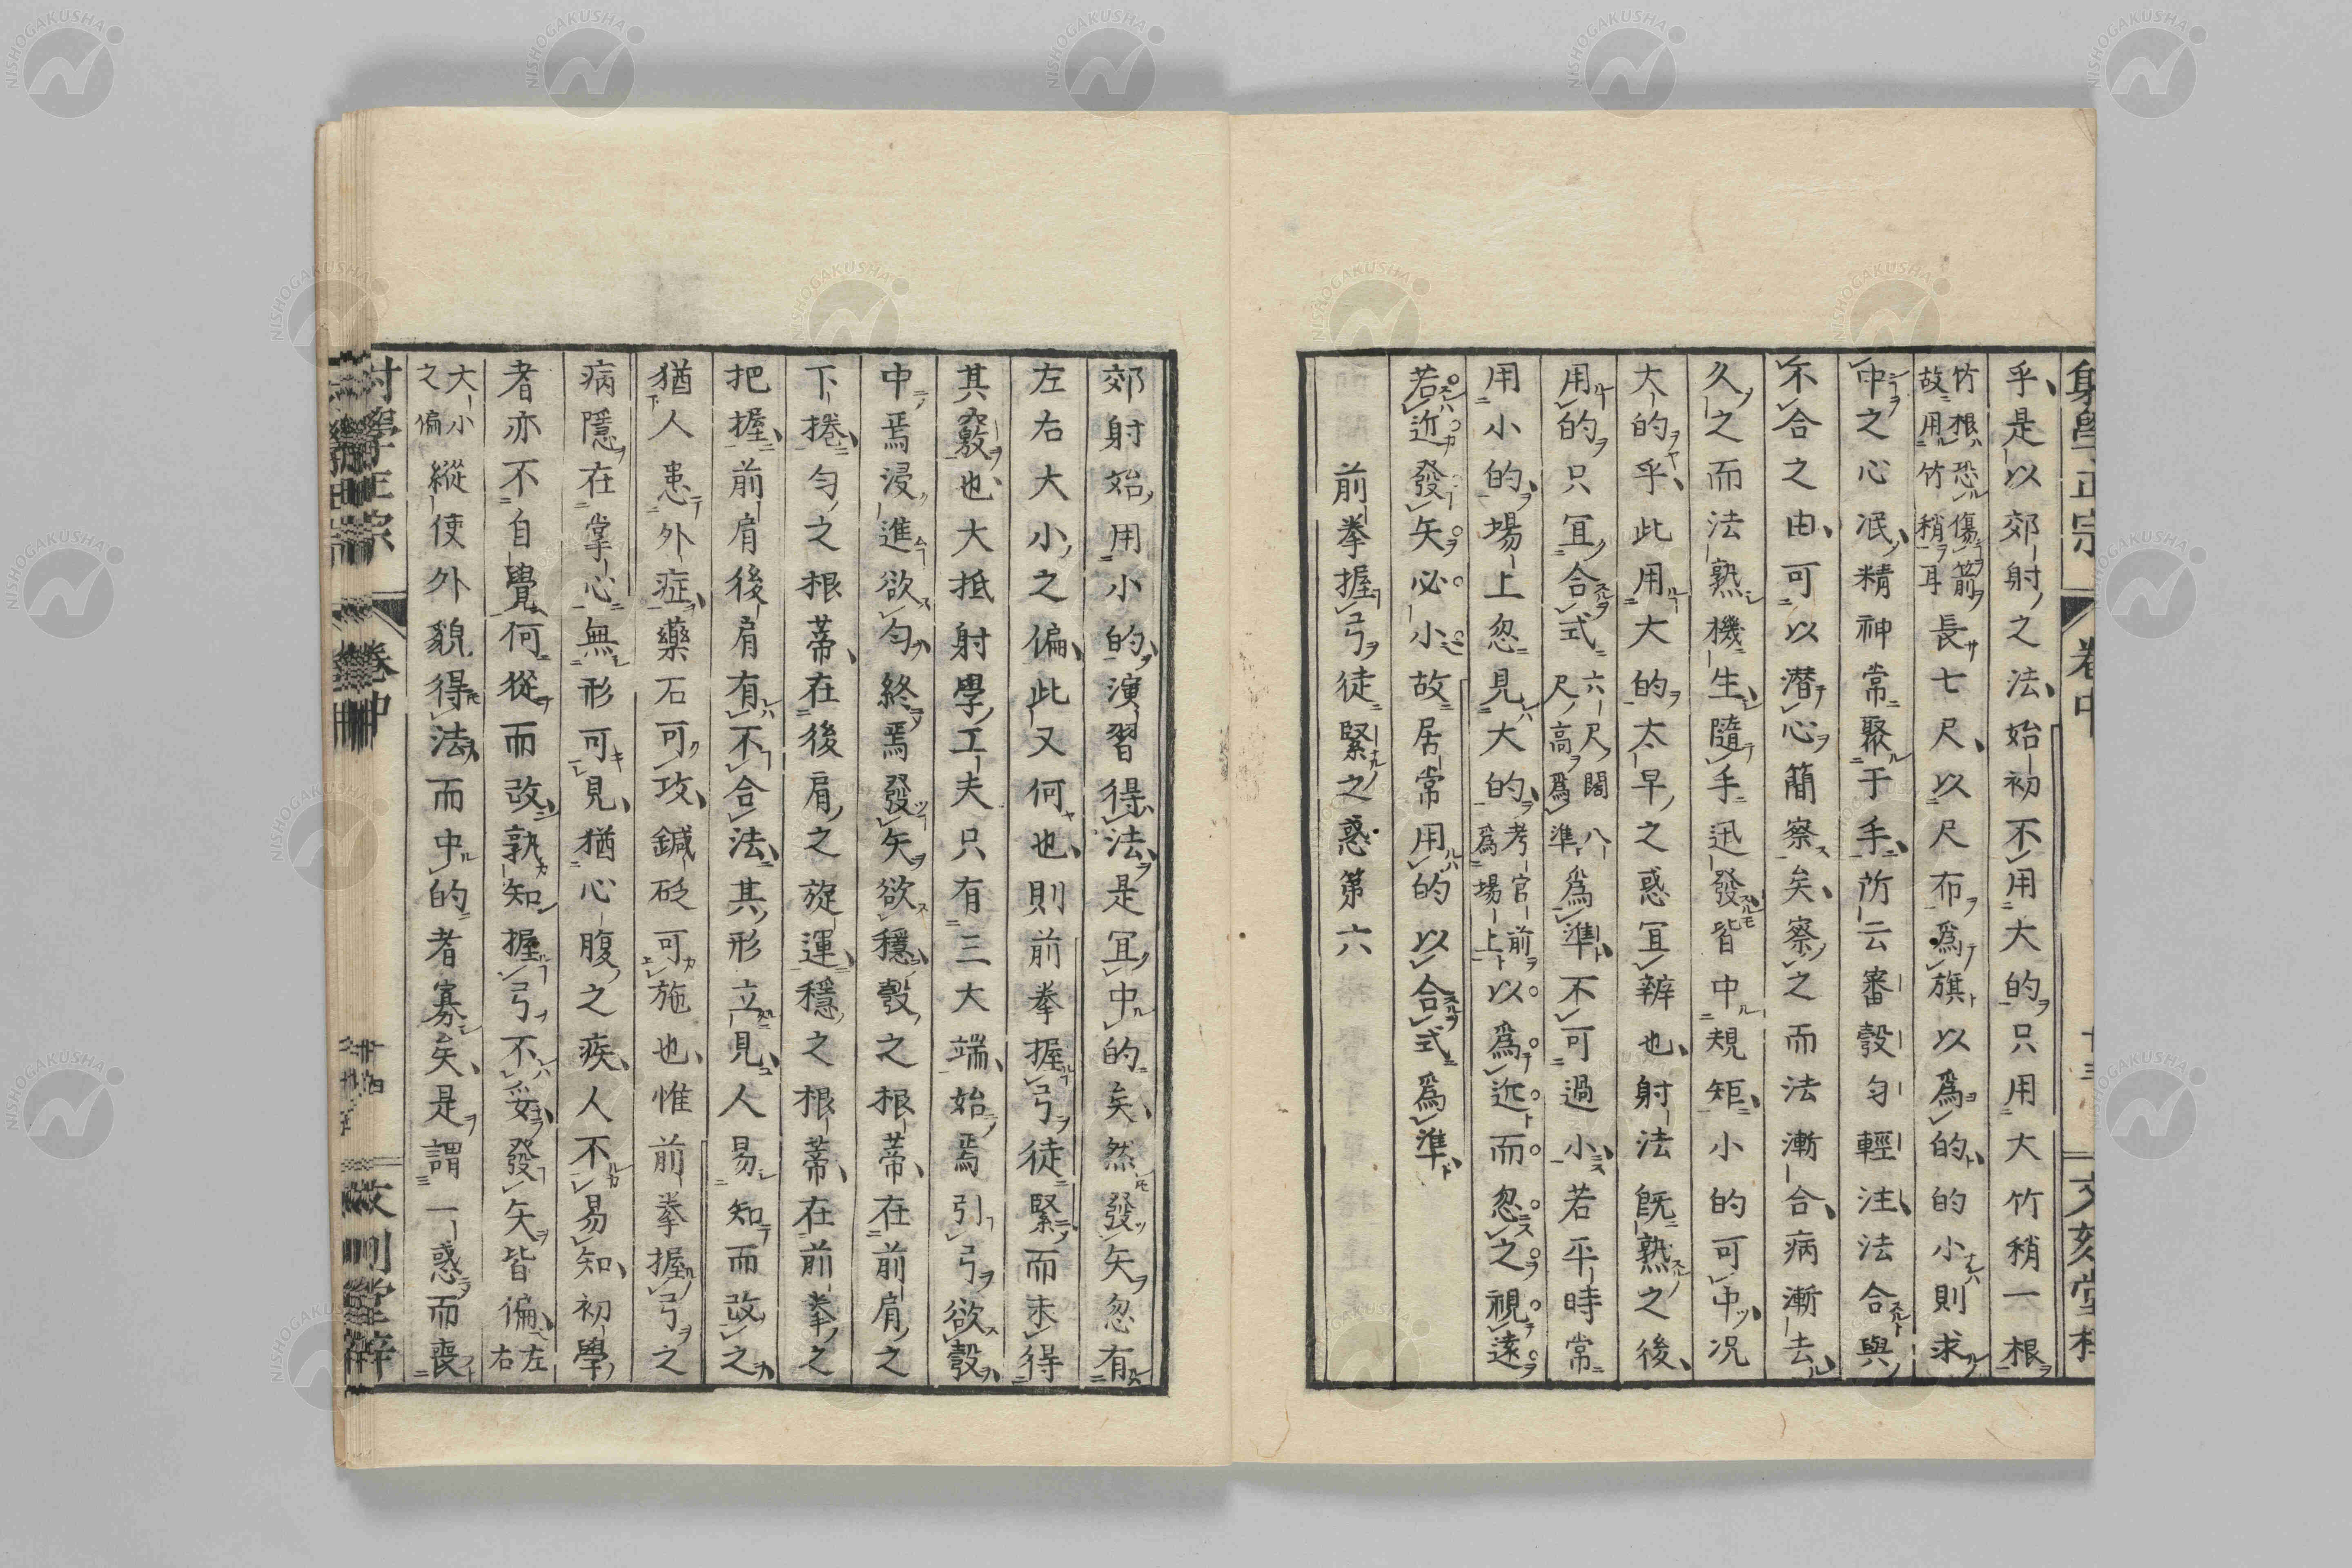 乎是以郊射之法始初不用大的只用大竹稍一根
竹根恐傷箭
故用竹稍耳
長七尺以尺布爲旗以爲的的小則求
中之心泯精神常聚于手所云審彀勻輕注法合與
不合之由可以潜心簡察矣察之而法漸合病漸去
久之而法熟機生隨手迅發皆中規矩小的可中况
大的乎此用大的太早之惑冝辨也射法既熟之後
用的只冝合式
六尺闊八
尺高爲準
爲準不可過小若平時常
用小的塲上忽見大的
考官前
爲塲上
以爲近而忽之視遠
若近發矢必小故居常用的以合式爲準
前拳握弓徒緊之惑第六
郊射始用小的演習得法是冝中的矣然發矢忽有
左右大小之偏此又何也則前拳握弓徒緊而未得
其竅也大抵射學工夫只有三大端始焉引弓欲彀
中焉浸進欲勻終焉發矢欲穩彀之根蒂在前肩之
下捲勻之根蒂在後肩之旋運穩之根蒂在前拳之
把握前肩後肩有不合法其形立見人易知而改之
猶人患外症藥石可攻鍼砭可施也惟前拳握弓之
病隱在掌心無形可見猶心腹之疾人不易知初學
者亦不自覺何從而改孰知握弓不妥發矢皆偏
左
右
大小
之偏
縱使外貌得法而中的者寡矣是謂一惑而喪
射學正宗
卷中
NISHOGAKUSHA